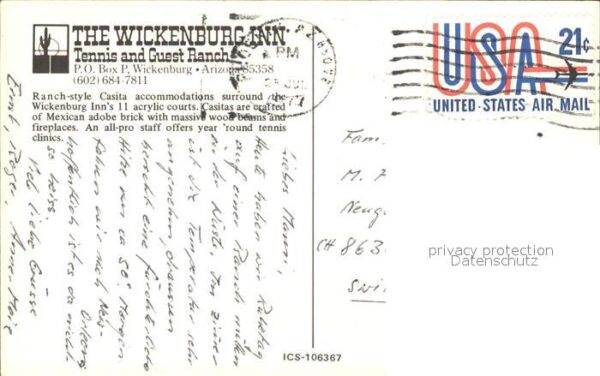 THE WICKENBURG INN
Tennis and Guest Ranch
P. O. Box P, Wickenburg • Arizona 85358
(602) 684-7811
Ranch-style Casita accommodations surround the
Wickenburg Inn's 11 acrylic courts. Casitas are crafted
of Mexican adobe brick with massive wood beams and
fireplaces. An all-pro staff offers year 'round tennis
clinics.
PM
USA 21c
UNITED STATES AIR MAIL
Liebes Mammi,
Heute haben wir Ruhetag
auf einer Ranch mitten
in der Wüste. Im Zimmer
ist die Temperatur sehr
angenehm, draussen
herrscht eine fürchterliche
Hitze von ca 50°. Morgen
fahren wir nach New-
Orleans
hoffentlich ist es da nicht
so heiss.
Viele liebe Grüsse
Ernst, Roger, Anne-Marie
Fam.
M.
Neug
CH 863
Swi
privacy protection
Datenschutz
ICS-106367